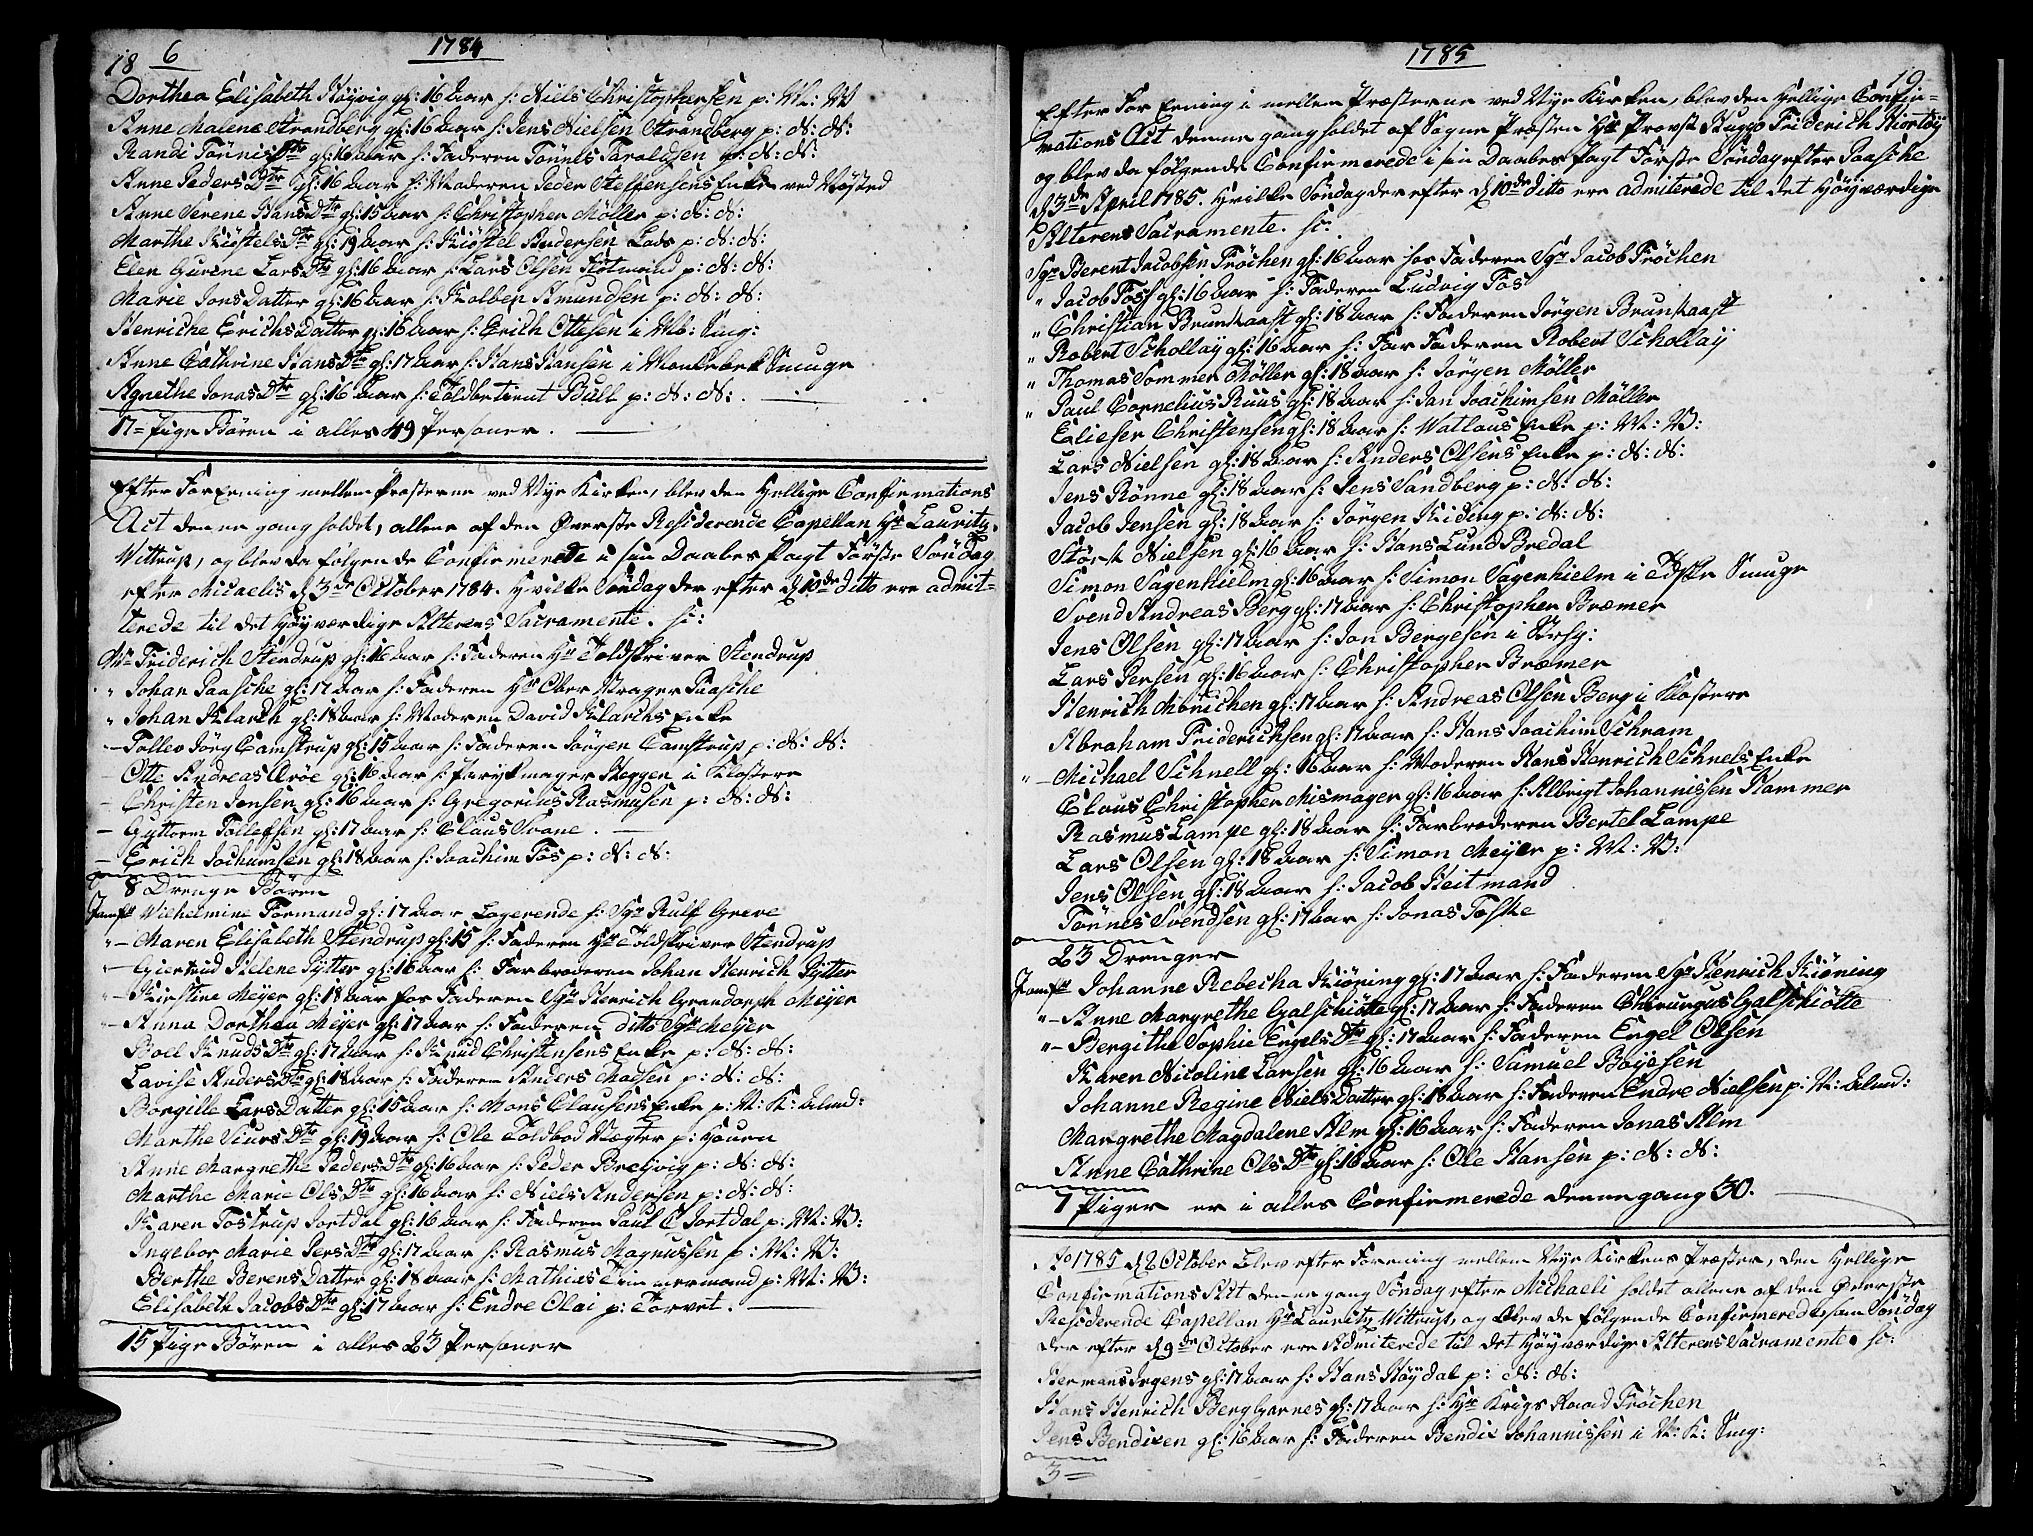 18 6 1784
Dorthea Elisabeth Høyvig gl: 16 Aar h: Niels Christophersen p: W: W
Anne Malene Strandberg gl: 16 Aar h: Jens Nielsen Strandberg p: N: N:
Randi Tönnis Dtr gl: 16 Aar h: Faderen Tönnes Taraldsen p: N: N:
Anne Peders Dtr gl: 16 Aar h: Moderen Peder Steffensens Enke ved
Anne Serene Hans Dtr gl: 15 Aar h: Christopher Möller p: N: N:
Marthe Kiöstels Dtr gl: 19 Aar h: Kiöstel Andersen Lads p: N: N:
Elen Gurine Lars Dtr gl: 16 Aar h: Lars Olsen p: N: N:
Marie Jons Datter gl: 16 Aar h: Kolben Amundsen p: N: N:
Henriche Erichs Datter gl: 16 Aar h: Erich Ottesen i Mb: Smg:
Anne Cathrine Hans Dtr gl: 17 Aar h: Hans Hansen i Smuge
Agnethe Jonas Dtr gl: 16 Aar h: Toldbetient Bull p: N: N:
17 Pige Børn i alles 49 Personer.
Efter Forening mellem Præsterne ved Nye Kirken, blev den Hellige Confirmations
Act denne gang holdet, allene af den Øverste Residerende Capellan Hr Lauritz
Wittrup, og blev da følgende Confirmerede i sin Daabes Pagt Første Söndag
efter Micaelis d 3de October 1784. Hvilke Söndag der efter d 10de ditto ere admit-
terede til det Høyværdige Alterens Sacramente. sc:
Mr Friderich Stendrup gl: 16 Aar h: Faderen Hr Toldskriver Stendrup
" Johan Paasche gl: 17 Aar h: Faderen Hr Ober Vrager Paasche
" Johan Klarch gl: 18 Aar h: Moderen David Klarchs Enke
– Tollev Jörg Camstrup gl: 15 Aar h: Faderen Jörgen Camstrup p: N: N:
– Otte Andreas Aröe gl: 16 Aar h: Parykmager Heggen i Klostere
– Christen Jensen gl: 16 Aar h: Gregorius Rasmusen p: N: N:
– Gyttorm Tollefsen gl: 17 Aar h: Claus Svane.
– Erich Jochumsen gl: 18 Aar h: Joachim Fos p: N: N:
8 Drenge Børn
Jomfr Wilhelmine Formand gl: 17 Aar Logerende h: Sgr Rulf Greve
"– Maren Elisabeth Stendrup gl: 15 h: Faderen Hr Toldskriver Stendrup
"– Giertrud Helene Pytter gl: 16 Aar h: Farbroderen Johan Henrich Pytter
"– Kirstine Meyer gl: 18 Aar hos Faderen Sgr Henrich Grandorph Meyer
– Anna Dorthea Meyer gl: 17 Aar h: Faderen ditto Sgr Meyer
Boel Knuds Dtr gl: 17 Aar h: Knud Christensens Enke p: N: N:
Lavise Anders Dtr gl: 18 Aar h: Faderen Anders Madsen p: N: N:
Borgille Lars Datter gl: 15 Aar h: Mons Clausens Enke p: N: K:
Marthe Siurs Dtr gl: 19 Aar h: Ole Toldbod Vægter p: Houen
Anne Margrethe Peders Dtr gl: 16 Aar h: Peder Bredvig p: N: N:
Marthe Marie Ols Dtr gl: 16 Aar h: Niels Andersen p: N: N:
Karen Tostrup Jortdal gl: 16 Aar h: Faderen Paul C Jortdal p: W: W:
Ingebor Marie Pers Dtr gl: 17 Aar h: Rasmus Magnussen p: W: W:
Berthe Berens Datter gl: 18 Aar h: Mathias Timmermand p: W: W:
Elisabeth Jacobs Dtr gl: 17 Aar h: Endre Olai p: Torvet.
15 Pige Børn i alles 23 Personer
1785 19
Efter Forening i mellem Præsterne ved Nye Kirken, blev den Hellige Confir-
mations Act denne gang holdet af Sogne Præsten Hr Provst Friderich
og blev da følgende Confirmerede i sin Daabes Pagt Første Söndag efter Paasche
d 3de April 1785. Hvilke Söndag der efter d 10de ditto ere admiterede til det Høyværdige
Alterens Sacramente. sc:
Sgr Berent Jacobsen Fröchen gl: 16 Aar hos Faderen Sgr Jacob Fröchen
" Jacob Foss gl: 16 Aar h: Faderen Ludvig Fos
" Christian Brunkaast gl: 18 Aar h: Faderen Jörgen Brunkaast
" Robert Schollay gl: 16 Aar h: Far Faderen Robert Schollay
" Thomas Sommer Möller gl: 18 Aar h: Jörgen Möller
" Paul Cornelius Ruus gl: 18 Aar h: Jan Joachimsen Möller
Elieser Christensen gl: 18 Aar h: Watlaus Enke p: W: W:
Lars Nielsen gl: 18 Aar h: Anders Olsens Enke p: N: N:
Jens Rönne gl: 18 Aar h: Jens Sandberg p: N: N:
Jacob Jensen gl: 18 Aar h: Jörgen Kiding p: N: N:
Störk Nielsen gl: 16 Aar h: Hans Lund Bredal
Simon Sagenhielm gl: 16 Aar h: Simon Sagenhielm i Tydske Smuge
Svend Andreas Berg gl: 17 Aar h: Christopher Bræmer
Jens Olsen gl: 17 Aar h: Jon Bergesen i
Lars Persen gl: 16 Aar h: Christopher Bræmer
Henrich Mörichen gl: 17 Aar h: Andreas Olsen Berg i Klostere
Abraham Friderichsen gl: 17 Aar h: Hans Joachim Schram
" – Michael Schnell gl: 16 Aar h: Moderen Hans Henrich Schnels Enke
Claus Christopher Mismager gl: 16 Aar h: Albrigt Johannissen Hammer
Rasmus Lampe gl: 18 Aar h: Farbroderen Bertel Lampe
Lars Olsen gl: 18 Aar h: Simon Meyer p: W: W:
Jens Olsen gl: 18 Aar h: Jacob Heitmand
Tönnes Svendsen gl: 17 Aar h: Jonas Foske
23 Drenger
Jomfr Johanne Rebecha Kiöning gl: 17 Aar h: Faderen Sgr Henrich Kiöning
"– Anne Margrethe Galschiötte gl: 17 Aar h: Faderen Chirurgus Galschiötte
"– Bergithe Sophie Engels Dtr gl: 17 Aar h: Faderen Engel Olsen
Karen Nicoline Larsen gl: 16 Aar h: Samuel Böyesen
Johanne Regine Niels Datter gl: 18 Aar h: Faderen Endre Nielsen p: N:
Margrethe Magdalene Alm gl: 16 Aar h: Faderen Jonas Alm
Anne Cathrine Ols Dtr gl: 16 Aar h: Ole Hansen p: N: N:
7 Piger er i alles Confirmerede denne gang 30.
Ao 1785 d 2 October blev efter Forening mellem Nye Kirkens Præster, den Hellige
Confirmations Act denne gang Söndag efter Michaeli holdet allene af den Øverste
Residerende Capellan Hr Lauritz Wittrup, og blev de følgende Confirmerede, som Söndag
der efter d 9de October ere Admiterede til det Høyværdige Alterens Sacramente. sc:
Herman Jrgens gl: 17 Aar h: Hans Höydal p: N: N:
Hans Henrich Berg Garnes gl: 17 Aar h: Hr Krigs Raad Fröchen
Jens Bendixen gl: 16 Aar h: Faderen Bendix Johannissen i N: K: Smg:
3 –